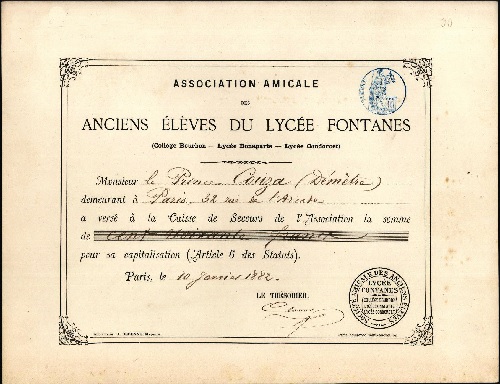 30
ASSOCIATION AMICALE
DES
ANCIENS ÉLÈVES DU LYCÉE FONTANES
(Collège Bourbon — Lycée Bonaparte — Lycée Condorcet)
Monsieur le Prince Couza (Démètre)
demeurant à Paris. 32 rue de l'Arcade
a versé à la Caisse de Secours de l'Association la somme
de cent
pour sa capitalisation (Article 6 des Statuts).
Paris, le 10 Janvier 1882
LE TRÉSORIER,
AMICALE DES ANCIENS ÉLÈVES
LYCÉE
FONTANES
COLLÈGE BOURBON
LYCÉE CONDORCET